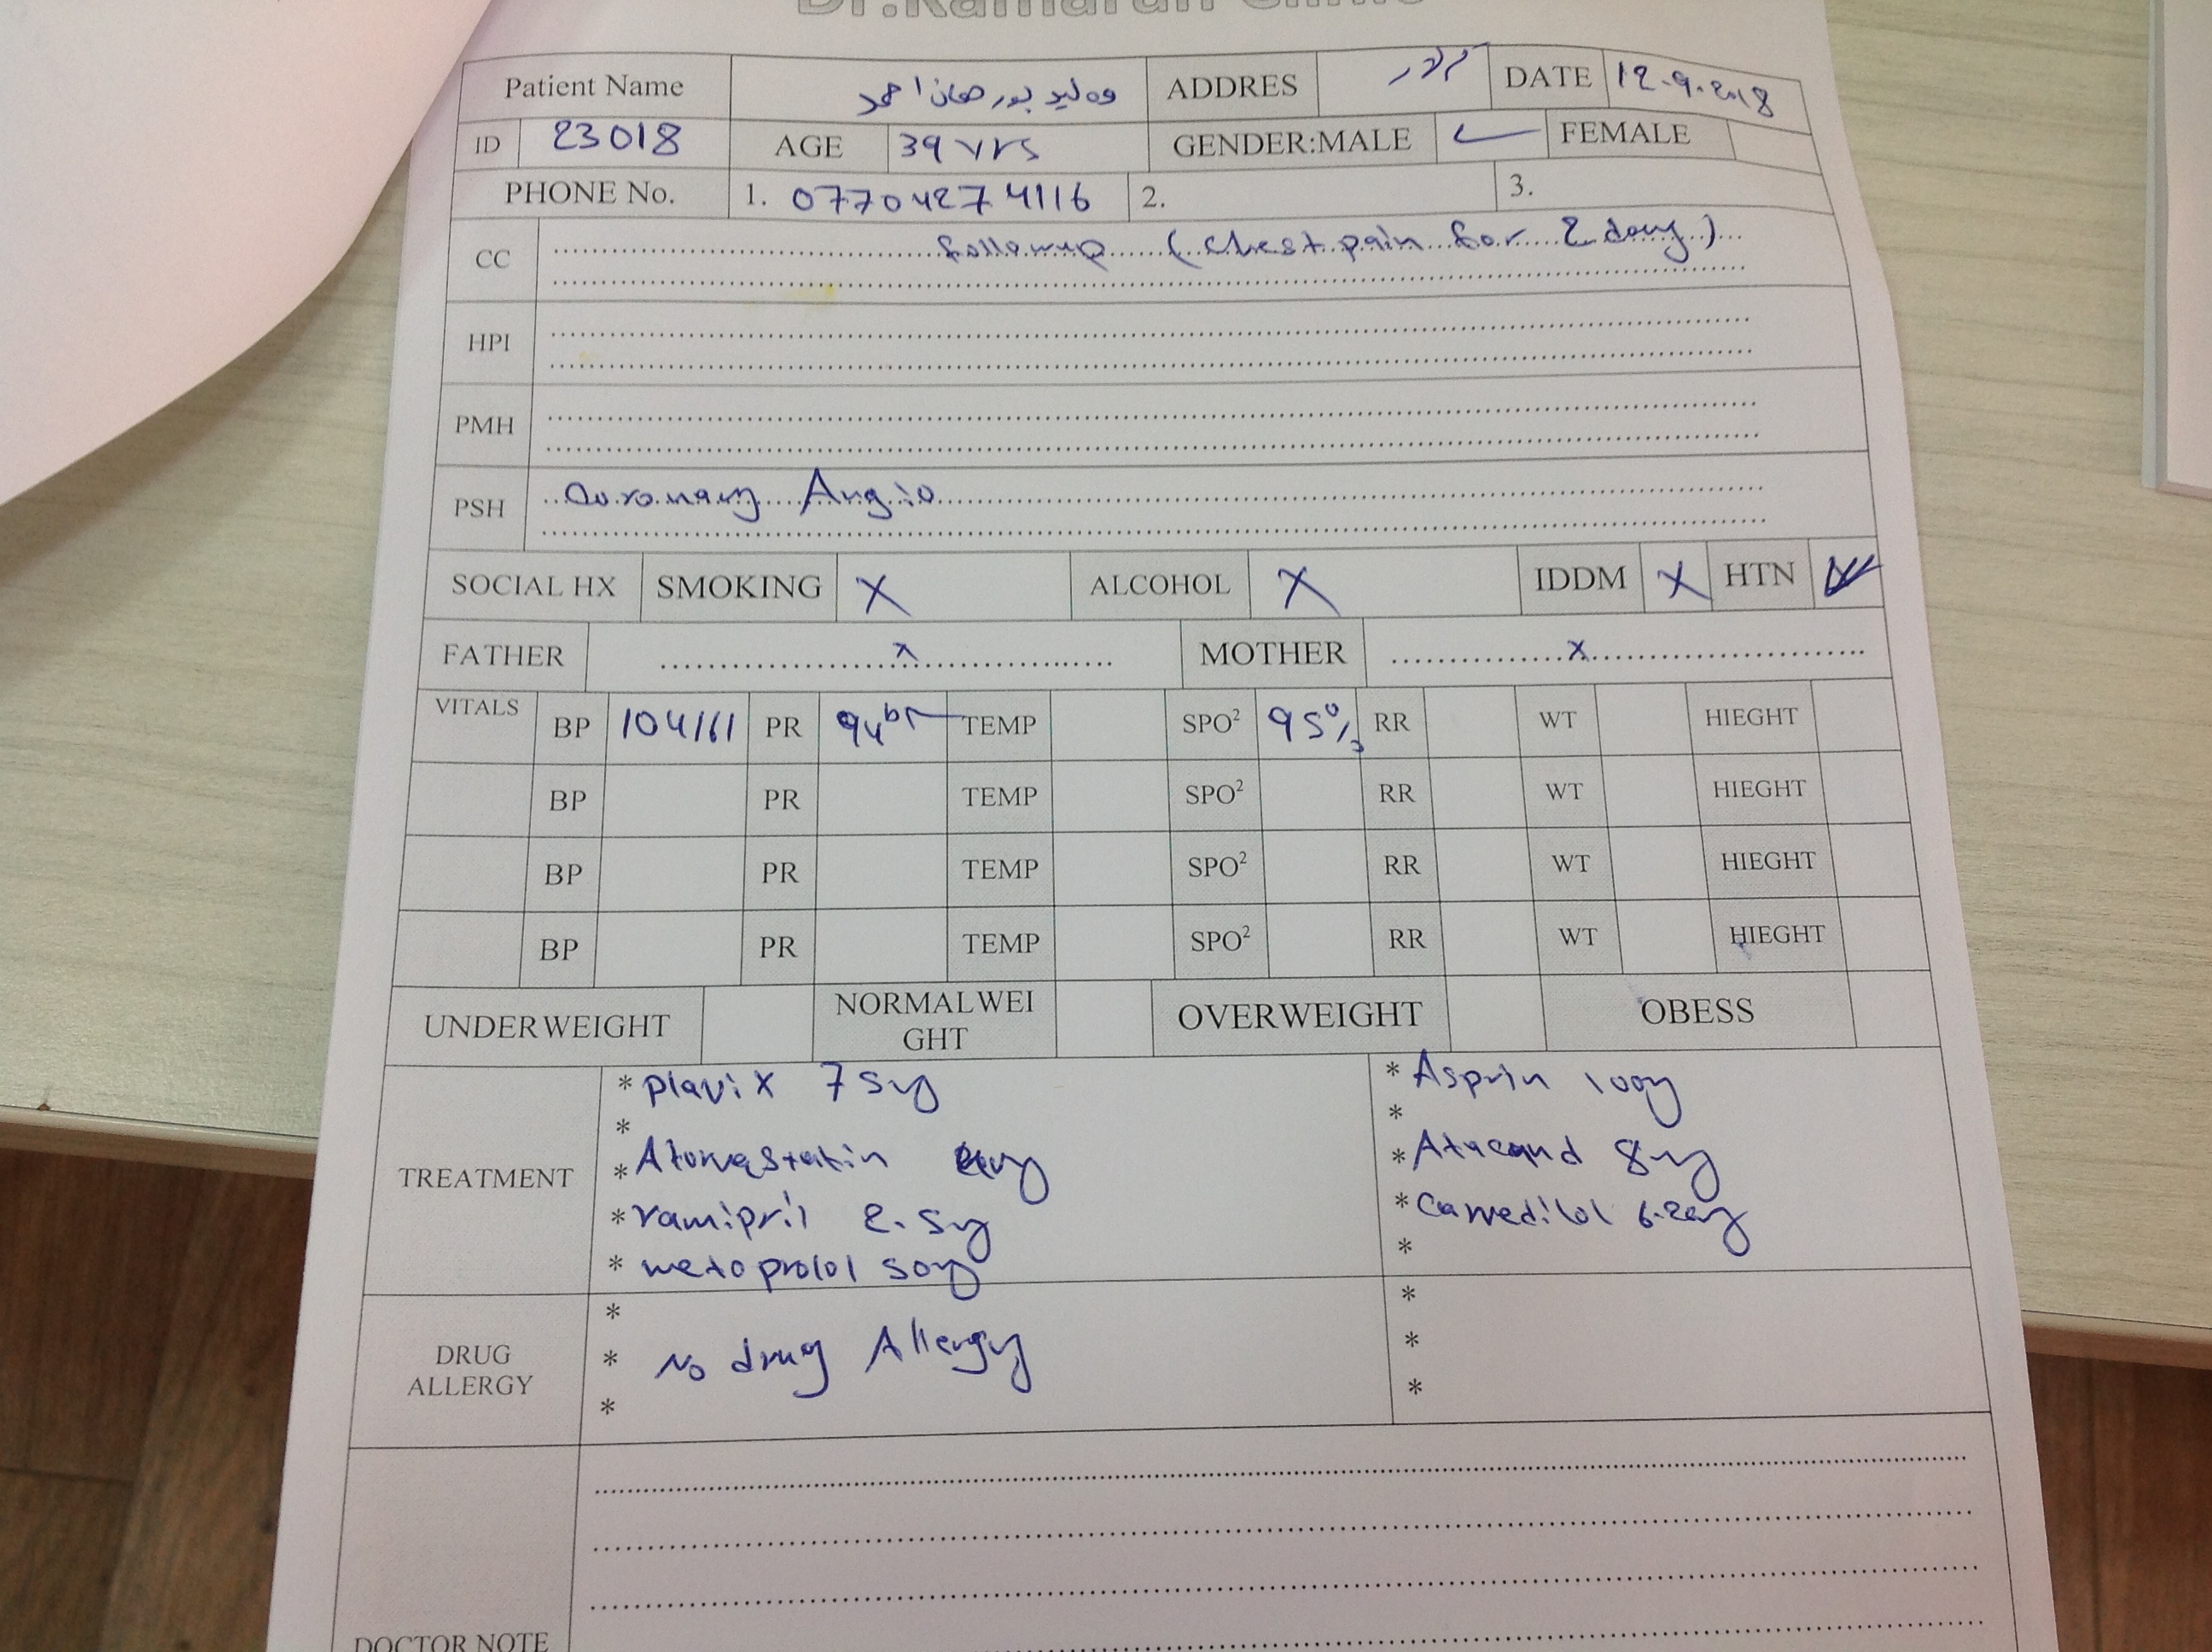 Patient Name وەلید بورهان احمد ADDRES DATE 12.9.2018
ID 23018 AGE 39 yrs GENDER:MALE ✓ FEMALE
PHONE No. 1. 07704274116 2. 3.
CC followup (chest pain for 2 day)
HPI
PMH
PSH Coronary Angio
SOCIAL HX SMOKING X ALCOHOL X IDDM X HTN ✓
FATHER x MOTHER x
VITALS BP 104/61 PR 94 TEMP SPO² 95% RR WT HIEGHT
BP PR TEMP SPO² RR WT HIEGHT
BP PR TEMP SPO² RR WT HIEGHT
BP PR TEMP SPO² RR WT HIEGHT
UNDERWEIGHT NORMALWEI
GHT OVERWEIGHT OBESS
TREATMENT
* plavix 75mg * Asprin 100mg
* *
* Atorvastatin * Atacand 8mg
* ramipril 2.5mg * Carvedilol
* metoprolol 50mg *
DRUG
ALLERGY
* *
* No drug Allergy *
* *
DOCTOR NOTE